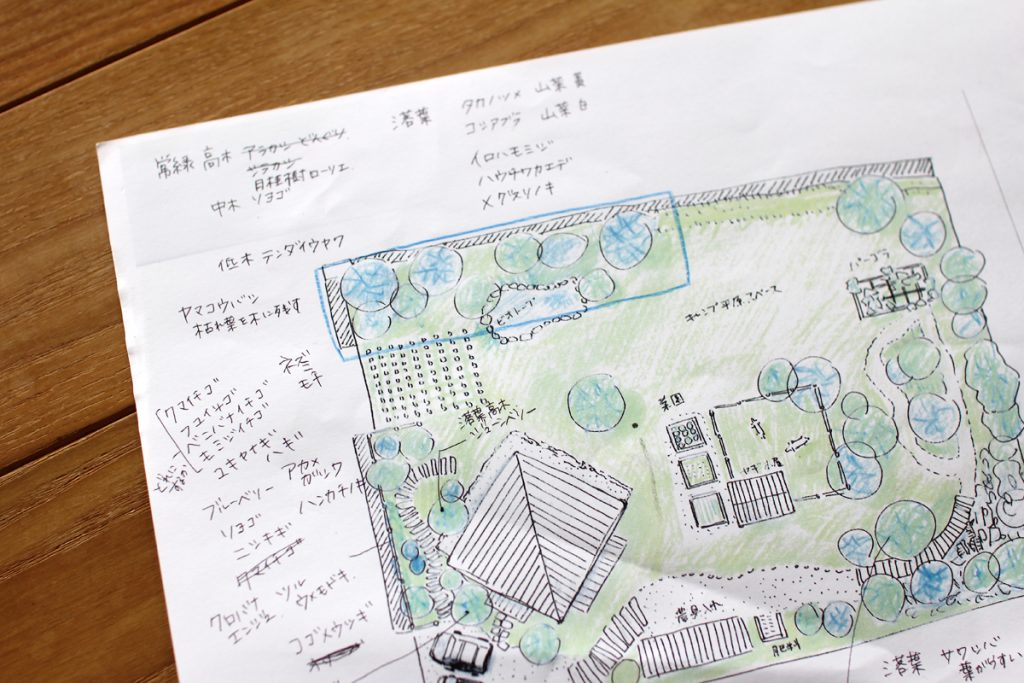 常緑 高木 アラカシ どんぐり
シラカシ
月桂樹ローリエ
中木 ソヨゴ
落葉 タカノツメ 山菜 黄
コシアブラ 山菜 白
イロハモミジ
ハウチワカエデ
メグスリノキ
低木 テンダイウヤク
ヤマコウバシ
枯れ葉を木に残す
ネズミモチ
クマイチゴ
フユイチゴ
ベニバナイチゴ
モミジイチゴ
ユキヤナギ
ハギ
ブルーベリー
アカメガシワ
ソヨゴ
ハンカチノキ
ニシキギ
クロバナエンジュ
ツルウメモドキ
コゴメウツギ
ビオトープ
キャンプ 平原 スペース
パーゴラ
落葉高木
ジューンベリー
菜園
ヤギ小屋
農具入れ
肥料
落葉 サワシバ
葉がうすい